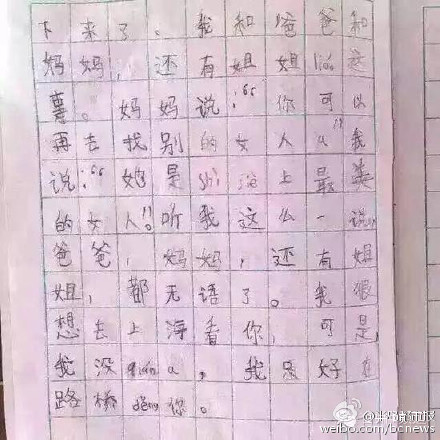 下来了。我和爸爸和
妈妈,还有姐姐liáo这
。妈妈说:“你可以
再去找别的女人a”我
说:“她是shì jiè上最美
的女人”。听我这么一说,
爸爸,妈妈,还有姐
姐,都无语了。我很
想去上海看你,可是
我没qián a,我只好在
路桥děng你。
weibo.com/bcnews